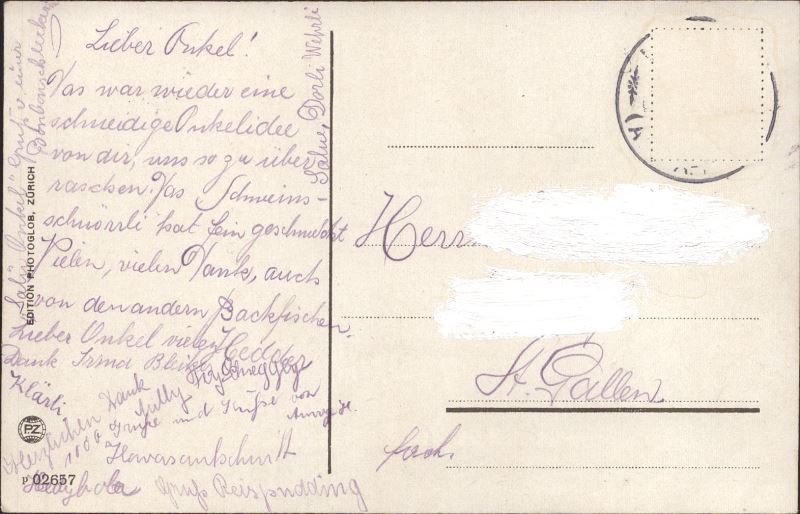 Lieber Onkel!
Das war wieder eine
schneidige Onkelidee
von dir, uns so zu über
raschen. Das Schweins-
schnörrli hat fein geschmeckt
Vielen, vielen Dank, auch
von den andern Backfischen.
Lieber Onkel vielen
Dank Irma
Klärli
Herzlichen Dank
1000 Grüße und Grüße von
Gruss Reispudding
Salü Onkel Gruß v. einer
Salue, Dorli Wehrli
EDITION PHOTOGLOB, ZÜRICH
PZ
P 02657
Herrn
St. Gallen